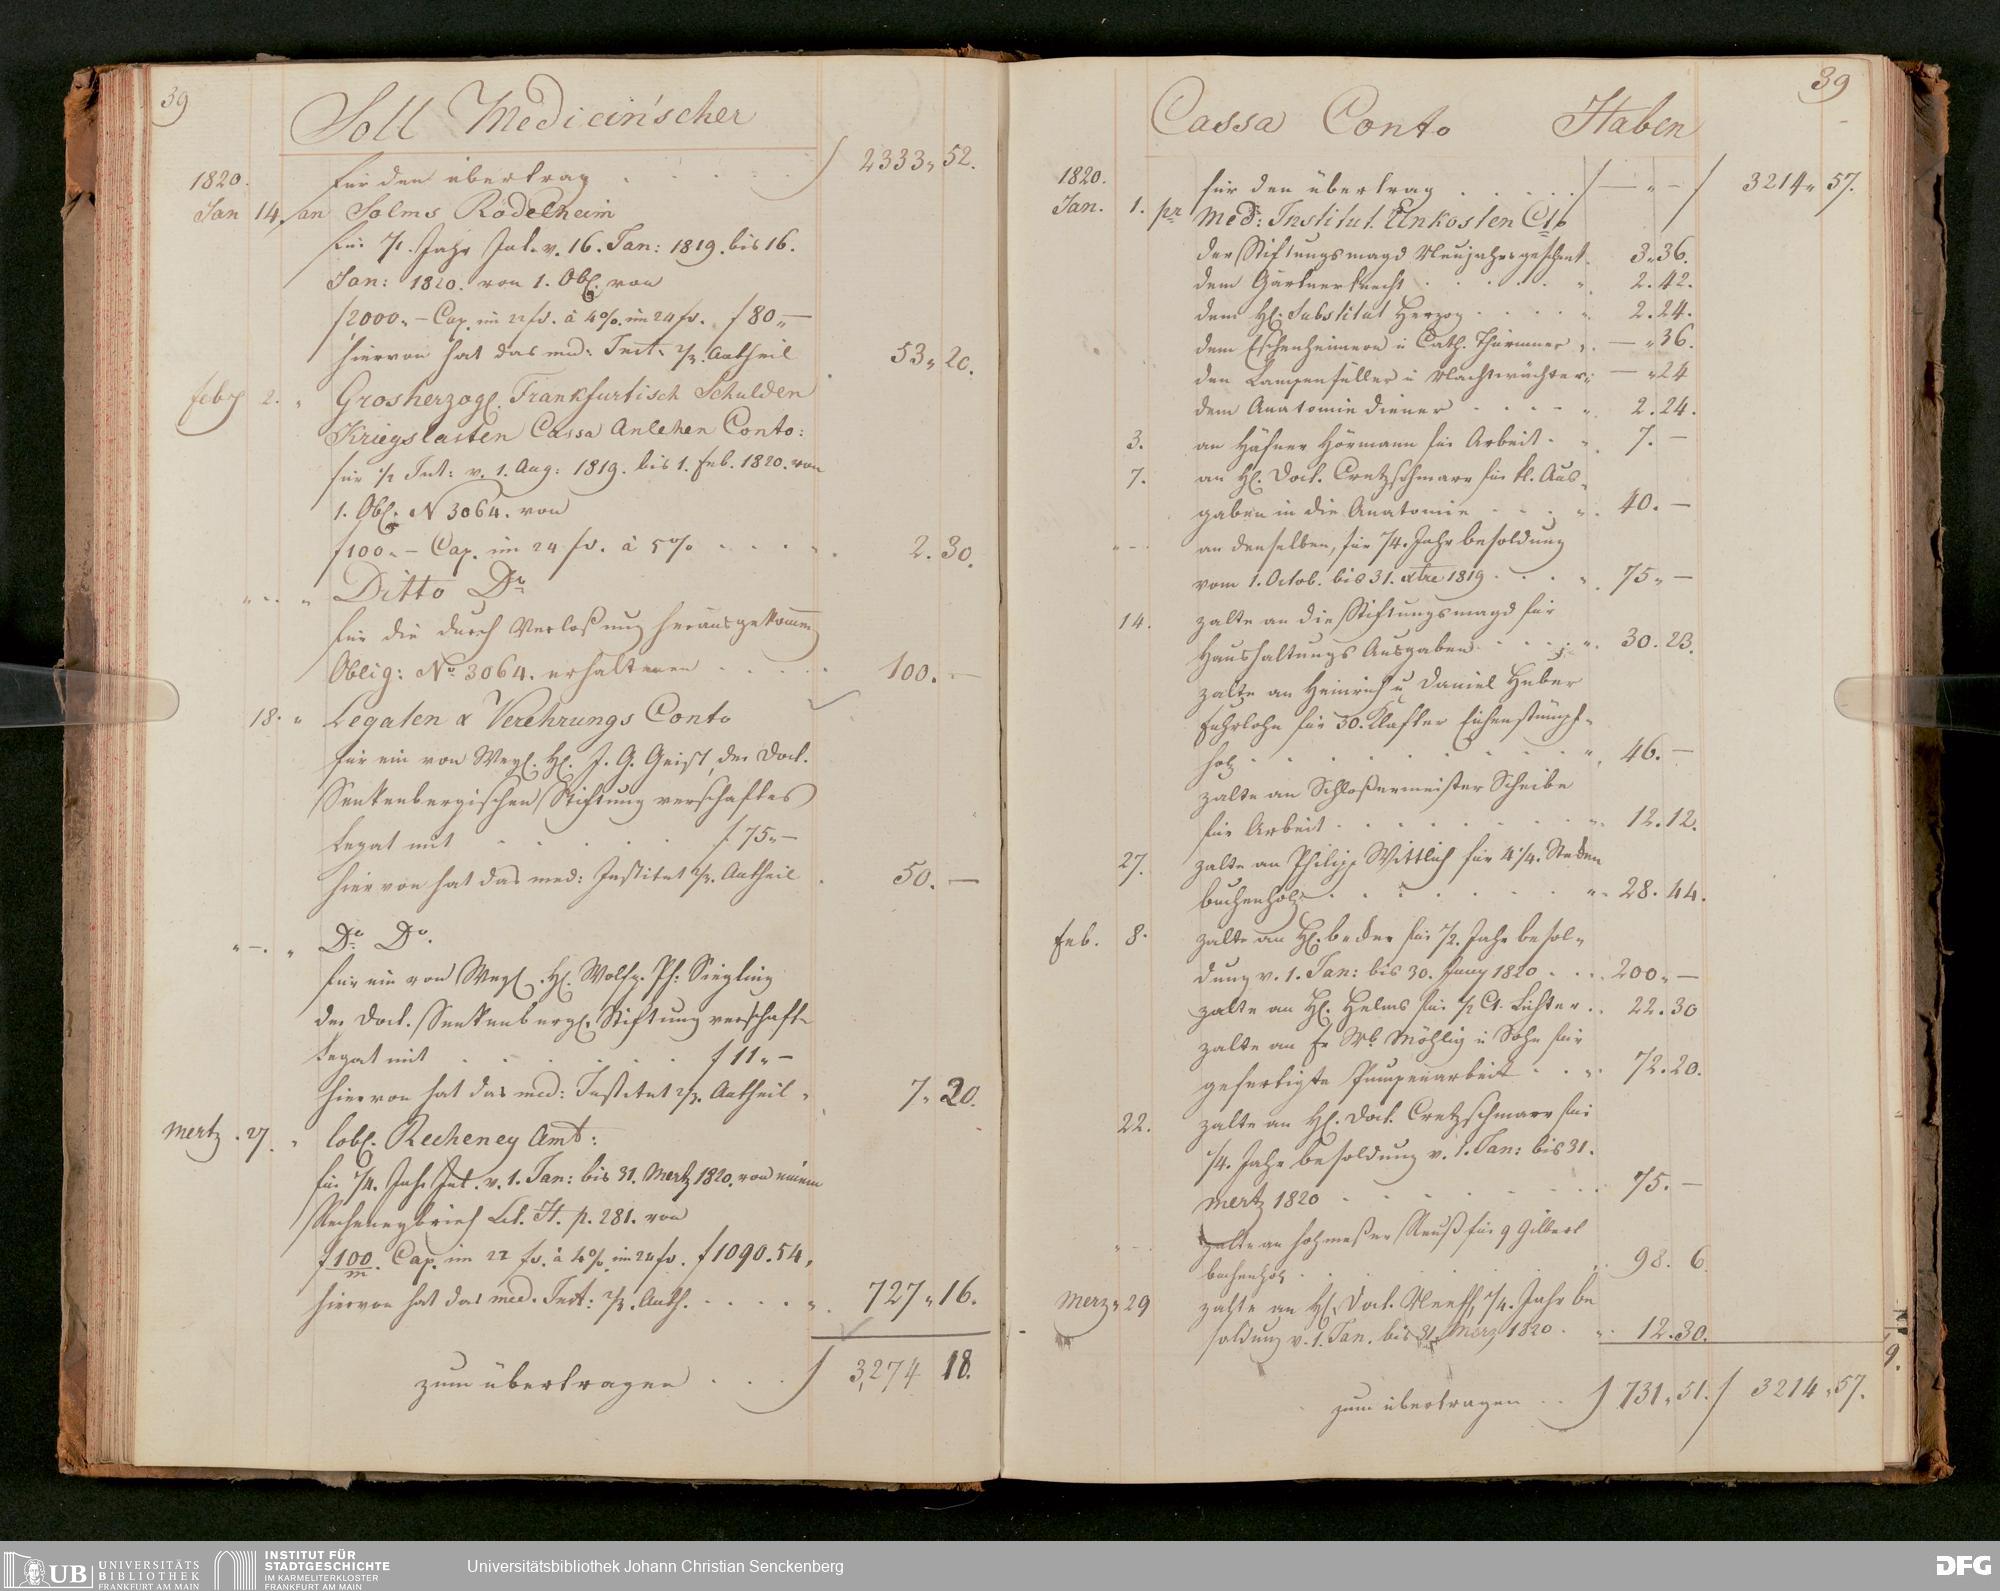 39
Soll Medicin'scher
1820.
für den übertrag . . . . . f 2333 „ 52.
Jan 14. an Solms Rödelheim
für 1/1. Jahr Int. v. 16. Jan: 1819. bis 16.
Jan: 1820. von 1. Obl. von
f 2000 „ – Cap. im 22 fs. à 4%. im 24 fs. f 80 „ –
hiervon hat das med: Inst. 2/3. Antheil 53 „ 20.
feby 2. „ Grosherzogl. Frankfurtisch Schulden
Kriegslasten Cassa Anlehen Conto:
für 1/2 Int: v. 1. Aug: 1819. bis 1. feb. 1820. von
1. Obl. N 3064. von
f 100 „ – Cap. im 24 fs. à 5% . . . . . 2. 30.
„ – „ Ditto Do
für die durch Verloßung herausgekommene
Oblig: No 3064. erhaltenen . . . . 100. –
18. „ Legaten & Verehrungs Conto
für ein von Weyl. H. J. G. Geist, der Doct.
Senkenbergischen Stiftung verschafftes
Legat mit . . . . . f 75 „ –
hiervon hat das med: Institut 2/3. Antheil . 50. –
„ – „ Do Do.
für ein von Weyl. H. Wolfg. Ph: Siegling
der Doct. Senkenbergl. Stiftung verschafte
Legat mit . . . . . . f 11 „ –
hiervon hat das med: Institut 2/3. Antheil „ 7 „ 20.
Mertz . 27. „ löbl. Recheney Amt:
für 1/4. Jahr Int. v. 1. Jan: bis 31. Mertz 1820. von einem
Recheneybrief Lit. H. p. 281. von
f 100/m. Cap. im 22 fs. à 4%. im 24 fs. f 1090. 54.
hiervon hat das med. Inst: 2/3. Anth. . . . . „ 727 „ 16.
zum übertragen . . . f 3,274 18.
39
Cassa Conto Haben
1820.
für den übertrag . . . . . f — „ – f 3214 „ 57.
Jan. 1. pr Med: Institut. Unkosten Cto
der Stiftungsmagd Neujahrsgeschenk . 3 „ 36.
dem Gärtnerknecht . . . . . „ 2. 42.
dem H. Substitut Herzog . . . . „ 2. 24.
dem Eschenheimern u Cath. Thürmner „ — „ 36.
den Lampenfüller u Nachtwächter „ — „ 24
dem Anatomie diener . . . . „ 2. 24.
3. an Häfner Hörmann für Arbeit . „ 7. –
7. an H. Doct. Cretzschmarr für kl. Aus-
gaben in die Anatomie . . . „ 40. –
„ – an denselben, für 1/4. Jahr besoldung
vom 1. Octob. bis 31. xbre 1819 . . . „ 75 „ –
14. zalte an die Stiftungsmagd für
Haushaltungs Ausgaben . . . . „ 30. 23.
zalte an Heinrich u Daniel Huber
Fuhrlohn für 30. Klafter Eichenstumpf-
holz . . . . . . . . „ 46. –
zalte an Schloßermeister Scheibe
für Arbeit . . . . . . . „ 12. 12.
27. zalte an Philipp Wittlich für 4 1/4. Steden
buchenholz . . . . . . „ 28. 44.
feb. 8. zalte an H. beder für 1/2. Jahr besol-
dung v. 1. Jan: bis 30. Juny 1820 . . . 200 „ –
zalte an H. Helms für 1/2 Ct. Lichter . . 22. 30
zalte an Fr Wb Möhlig u Sohn für
gefertigte Pumpenarbeit . . „ 72. 20.
22. zalte an H. Doct. Cretzschmarr für
1/4. Jahr besoldung v. 1. Jan: bis 31.
Mertz 1820 . . . . . . . 75. –
„ – zalte an holzmeßer Neuß für 9 Gilbert
buchenholz . . . . . . . 98. 6.
Merz „ 29 zahlte an H. Doct. Neeff, 1/4. Jahr be
soldung v. 1. Jan. bis 31. Merz 1820 . „ 12. 30.
zum übertragen . . f 731 „ 51. f 3214 „ 57.
9.
UB UNIVERSITÄTS
BIBLIOTHEK
FRANKFURT AM MAIN
INSTITUT FÜR
STADTGESCHICHTE
IM KARMELITERKLOSTER
FRANKFURT AM MAIN
Universitätsbibliothek Johann Christian Senckenberg
DFG